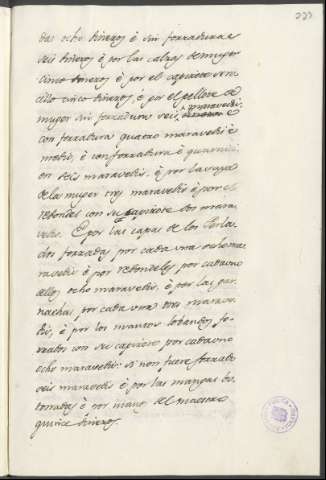 233
das ocho dineros è sin forraduras
seis dineros è por las calzas de muger
cinco dineros è por el capirote sen
cillo cinco dineros è por el pellote de
muger sin forraduras seis maravedis,
con forradura quatro maravedis è
medio, è con forradura è quarnicion
on seis maravedis, è por la saya
de la muger tres maravedis è por el
redondel con su capirote dos mara
vedis. E por las capas de los Perla
dos forradas por cada una ocho ma
ravedis è por redondeles por cada uno
dellos ocho maravedis è por las gar
nachas por cada una tres marave
dis, è por los mantos lobandos fo
rrados con su capirote por cada uno
ocho maravedis: si non fuere forrado
seis maravedis è por las mangas bo
tonadas è por manos del maestro
quince dineros.